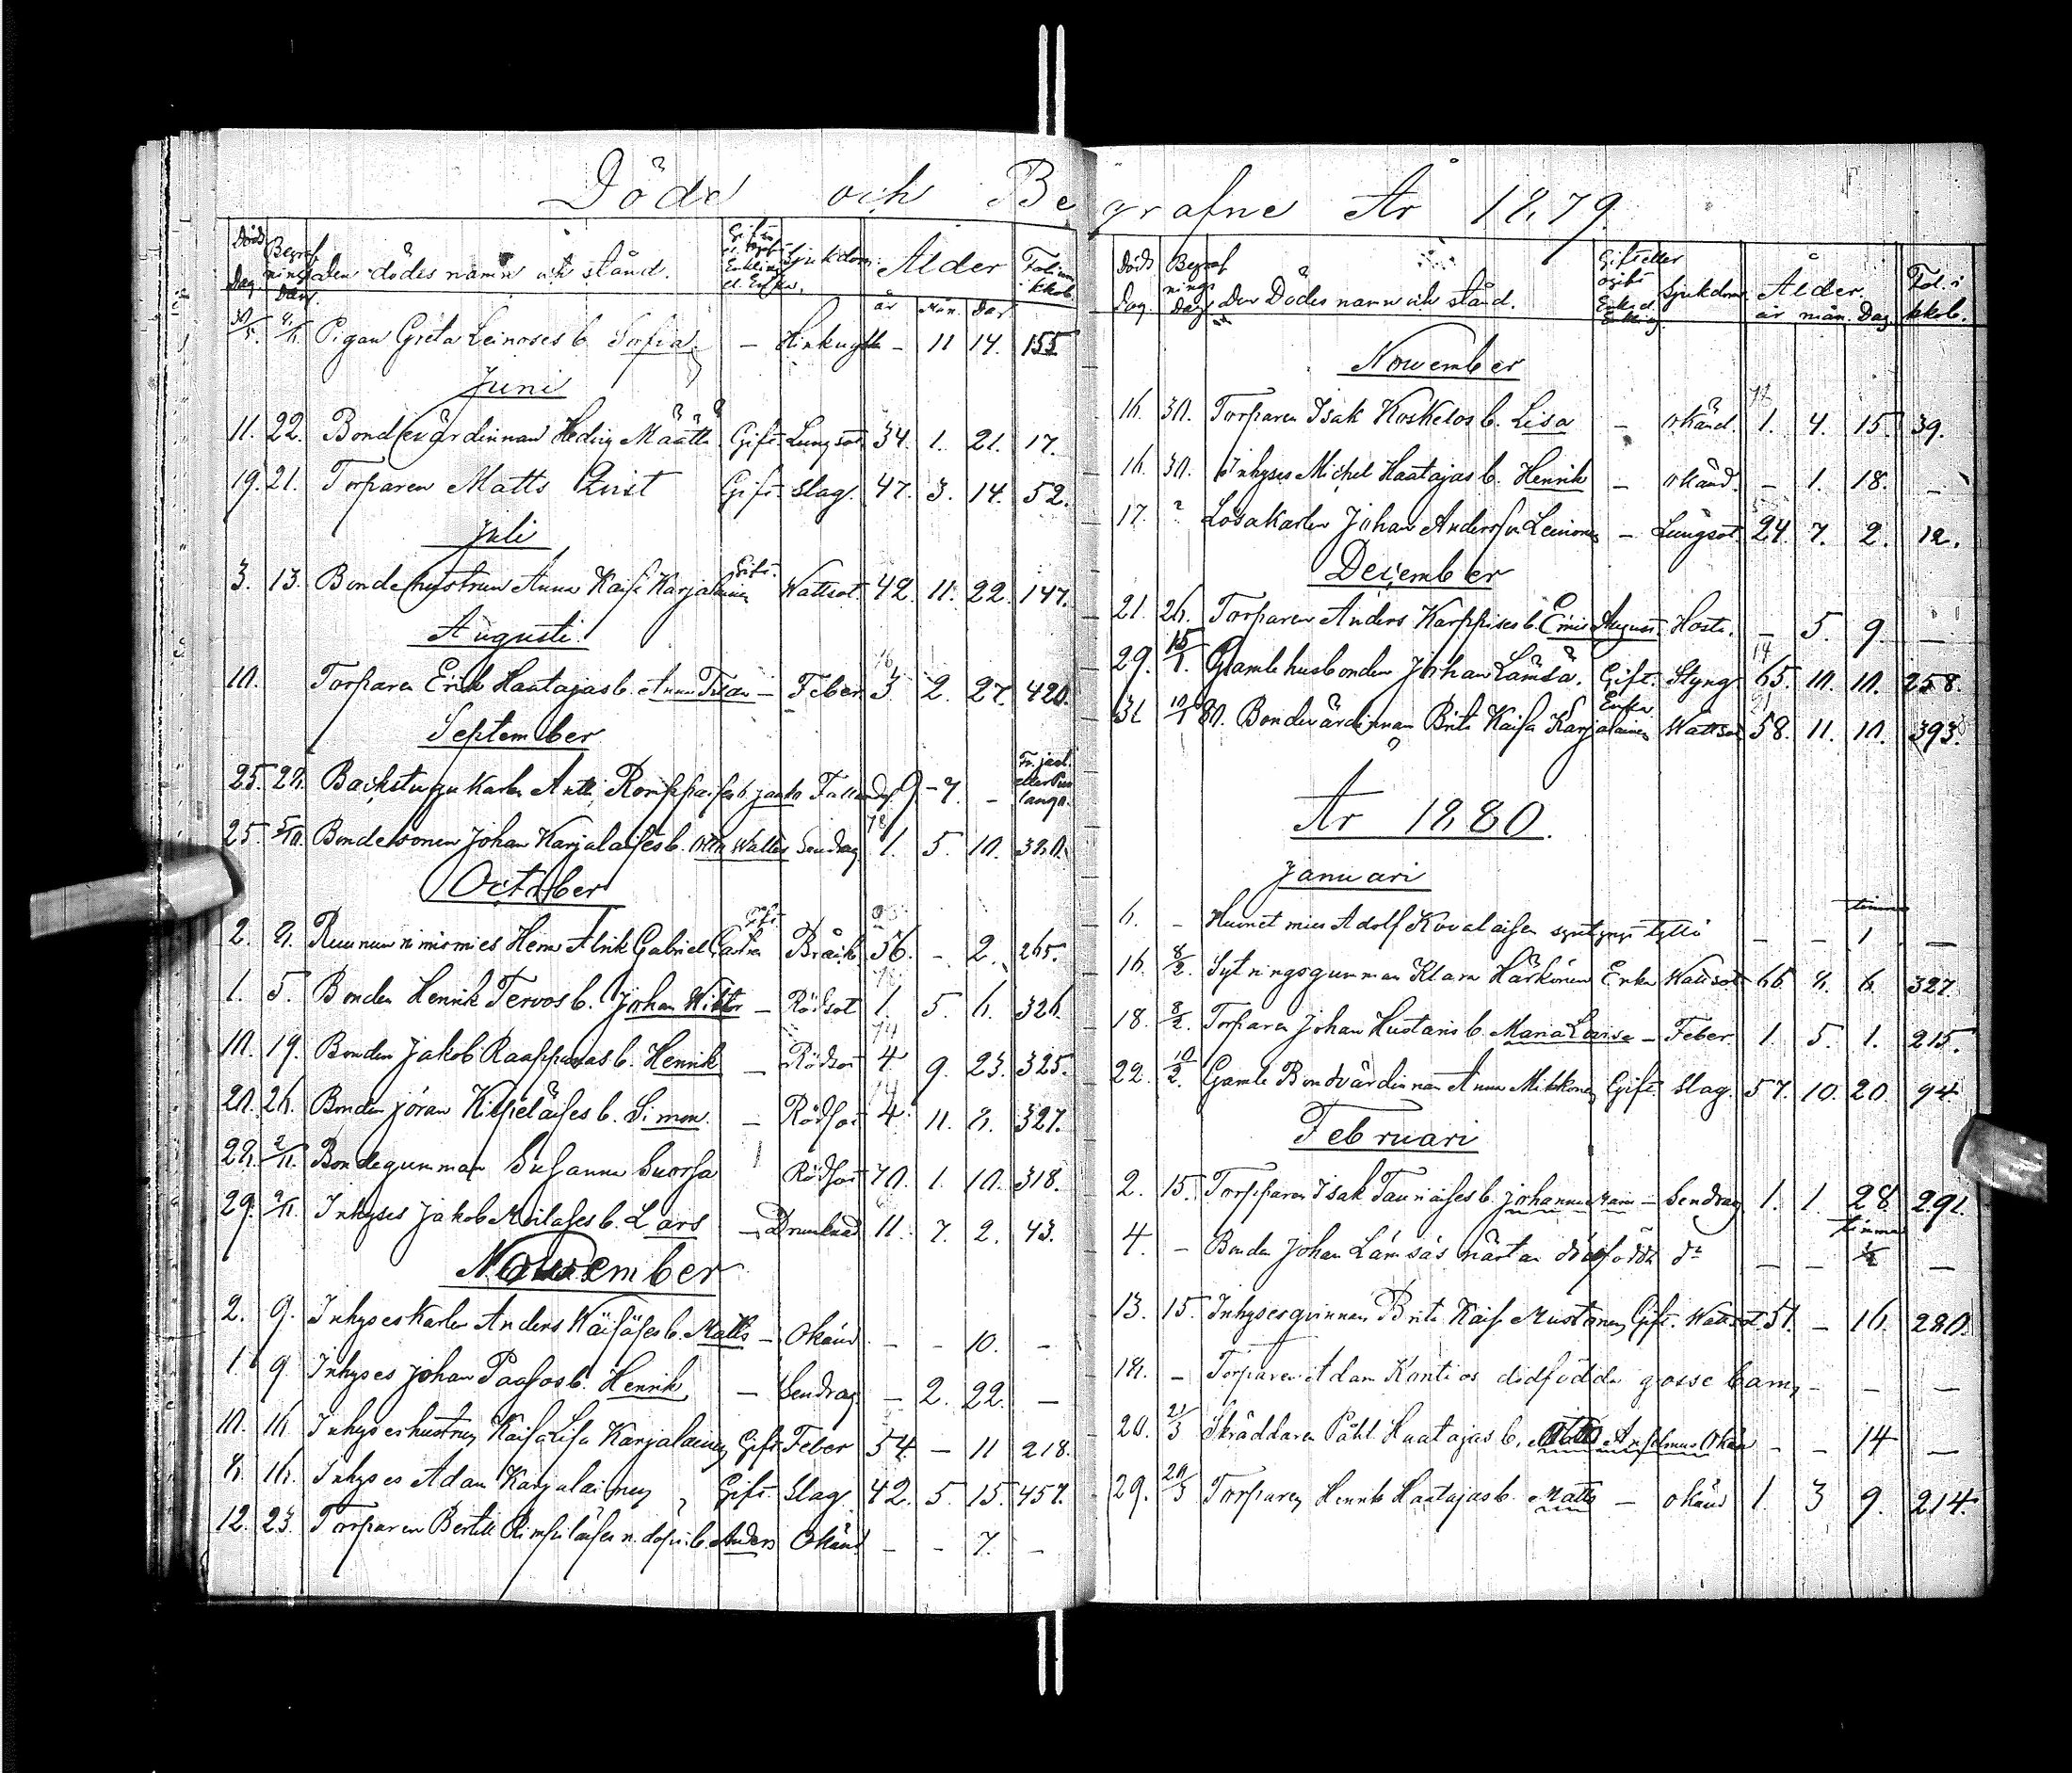 Döde och Be
Döds Dag. Begrafnings Dag. Den dödes namn och stånd. Sjukdom. Ålder Folium i kkob.
år Mån. Dar
30/5. 8/6. Pigan Greta Leinoses b. Sofia — Kikhosta — 11 14. 155
Juni
11. 22. Bondevärdinnan Hedvig Määttä Gift. Lungsot 34. 1. 21. 17.
19. 21. Torparen Matts Qvist Gift. Slag. 47. 3. 14. 52.
Juli
3. 13. Bondehustrun Anna Kaisa Karjalainen Gift. Wattsot. 42. 11. 22. 147.
Augusti.
10. Torparen Erik Haatajas b. Anna — Feber 3 2. 27. 420.
September
25. 28. Backstugukarlen Antti b. 9 - 7. -
25. 5/10. Bondesonen Johan Karjalaises b. Otto Walter Sendrag 1. 5. 10. 380.
October
2. 8. Herra Alrik Gabriel Castren Gift Bråck 36. - 2. 265.
1. 5. Bonden Henrik Tervos b. Johan Wiktor — Rödsot 1. 5. 6. 326.
10. 19. Bonden Jakob Raappanas b. Henrik — Rödsot 4 9. 23. 325.
20. 26. Bonden Jöran b. Simon. — Rödsot 4. 11. 8. 327.
28. 2/11. Bondegumman Susanna Suorsa Rödsot 70. 1. 10. 318.
29. 2/11. Inhyses Jakob Moilases b. Lars — Drunknad 11. 7. 2. 43.
November
2. 9. Inhyseskarlen Anders Wäisäses b. Matts — Okänd — - 10. -
1. 9. Inhyses Johan Paasos b. Henrik — Sendrag. — 2. 22. —
10. 16. Inhyseshustrun Kaisa Lisa Karjalainen Gift. Feber 54 — 11 218.
8. 16. Inhyses Adam Karjalainen Gift. Slag 42. 5. 15. 457.
12. 23. Torparen Bertill n. döpt b. Anders Okänd — - 7. —
grafne År 1879.
Döds Dag. Begrafnings Dag. Den Dödes namn och stånd. Gift eller ogift Sjukdom Ålder. Fol. i kkob.
år mån. Dag.
November
16. 30. Torparen Isak Koskelos b. Lisa — okänd. 1. 4. 15. 39.
16. 30. Inhyses Michel Haatajas b. Henrik — okänd. — 1. 18. —
17. ? Lösakarlen Johan Andersson Leinonen — Lungsot. 24. 7. 2. 12.
December
21. 26. Torparen Anders Karppises b. Emil August. Hosta. — 5. 9. —
29. 15/1. Gamle husbonden Johan Lämsä. Gift. Styng 65. 10. 10. 258.
31. 10/1 80. Bondevärdinnan Brita Kaisa Karjalainen Enka Wattsot 58. 11. 10. 393.
År 1880.
Januari
6. - mies Adolf Kovalaisen tyttö — — 1 timme —
16. 8/2. Sytningsgumman Klara Härkönen Enka Wattsot 66. 8. 6. 327.
18. 8/2. Torparen Johan b. Maria Lovisa — Feber 1. 5. 1. 215.
22. 10/2. Gamle Bondvärdinnan Anna Mikkonen Gift. Slag. 57. 10. 20 94
Februari
2. 15. Torparen Isak b. Johanna Maria — Sendrag 1. 1. 28 291.
4. - Bonden Johan Lämsäs nästan dödfödda — — ½ timma —
13. 15. Inhysesqvinnan Brita Kaisa Mustonen Gift. Wattsot 51. — 16. 280.
18. - Torparen Adam Kontios dödfödda gosse barn, - — —
20. 21/3 Skräddaren Påhl Haatajas b. Anselmus Okän - - 14 —
29. 20/3 Torparen Henrik Haatajas b. Matts — okänd 1. 3 9. 214.